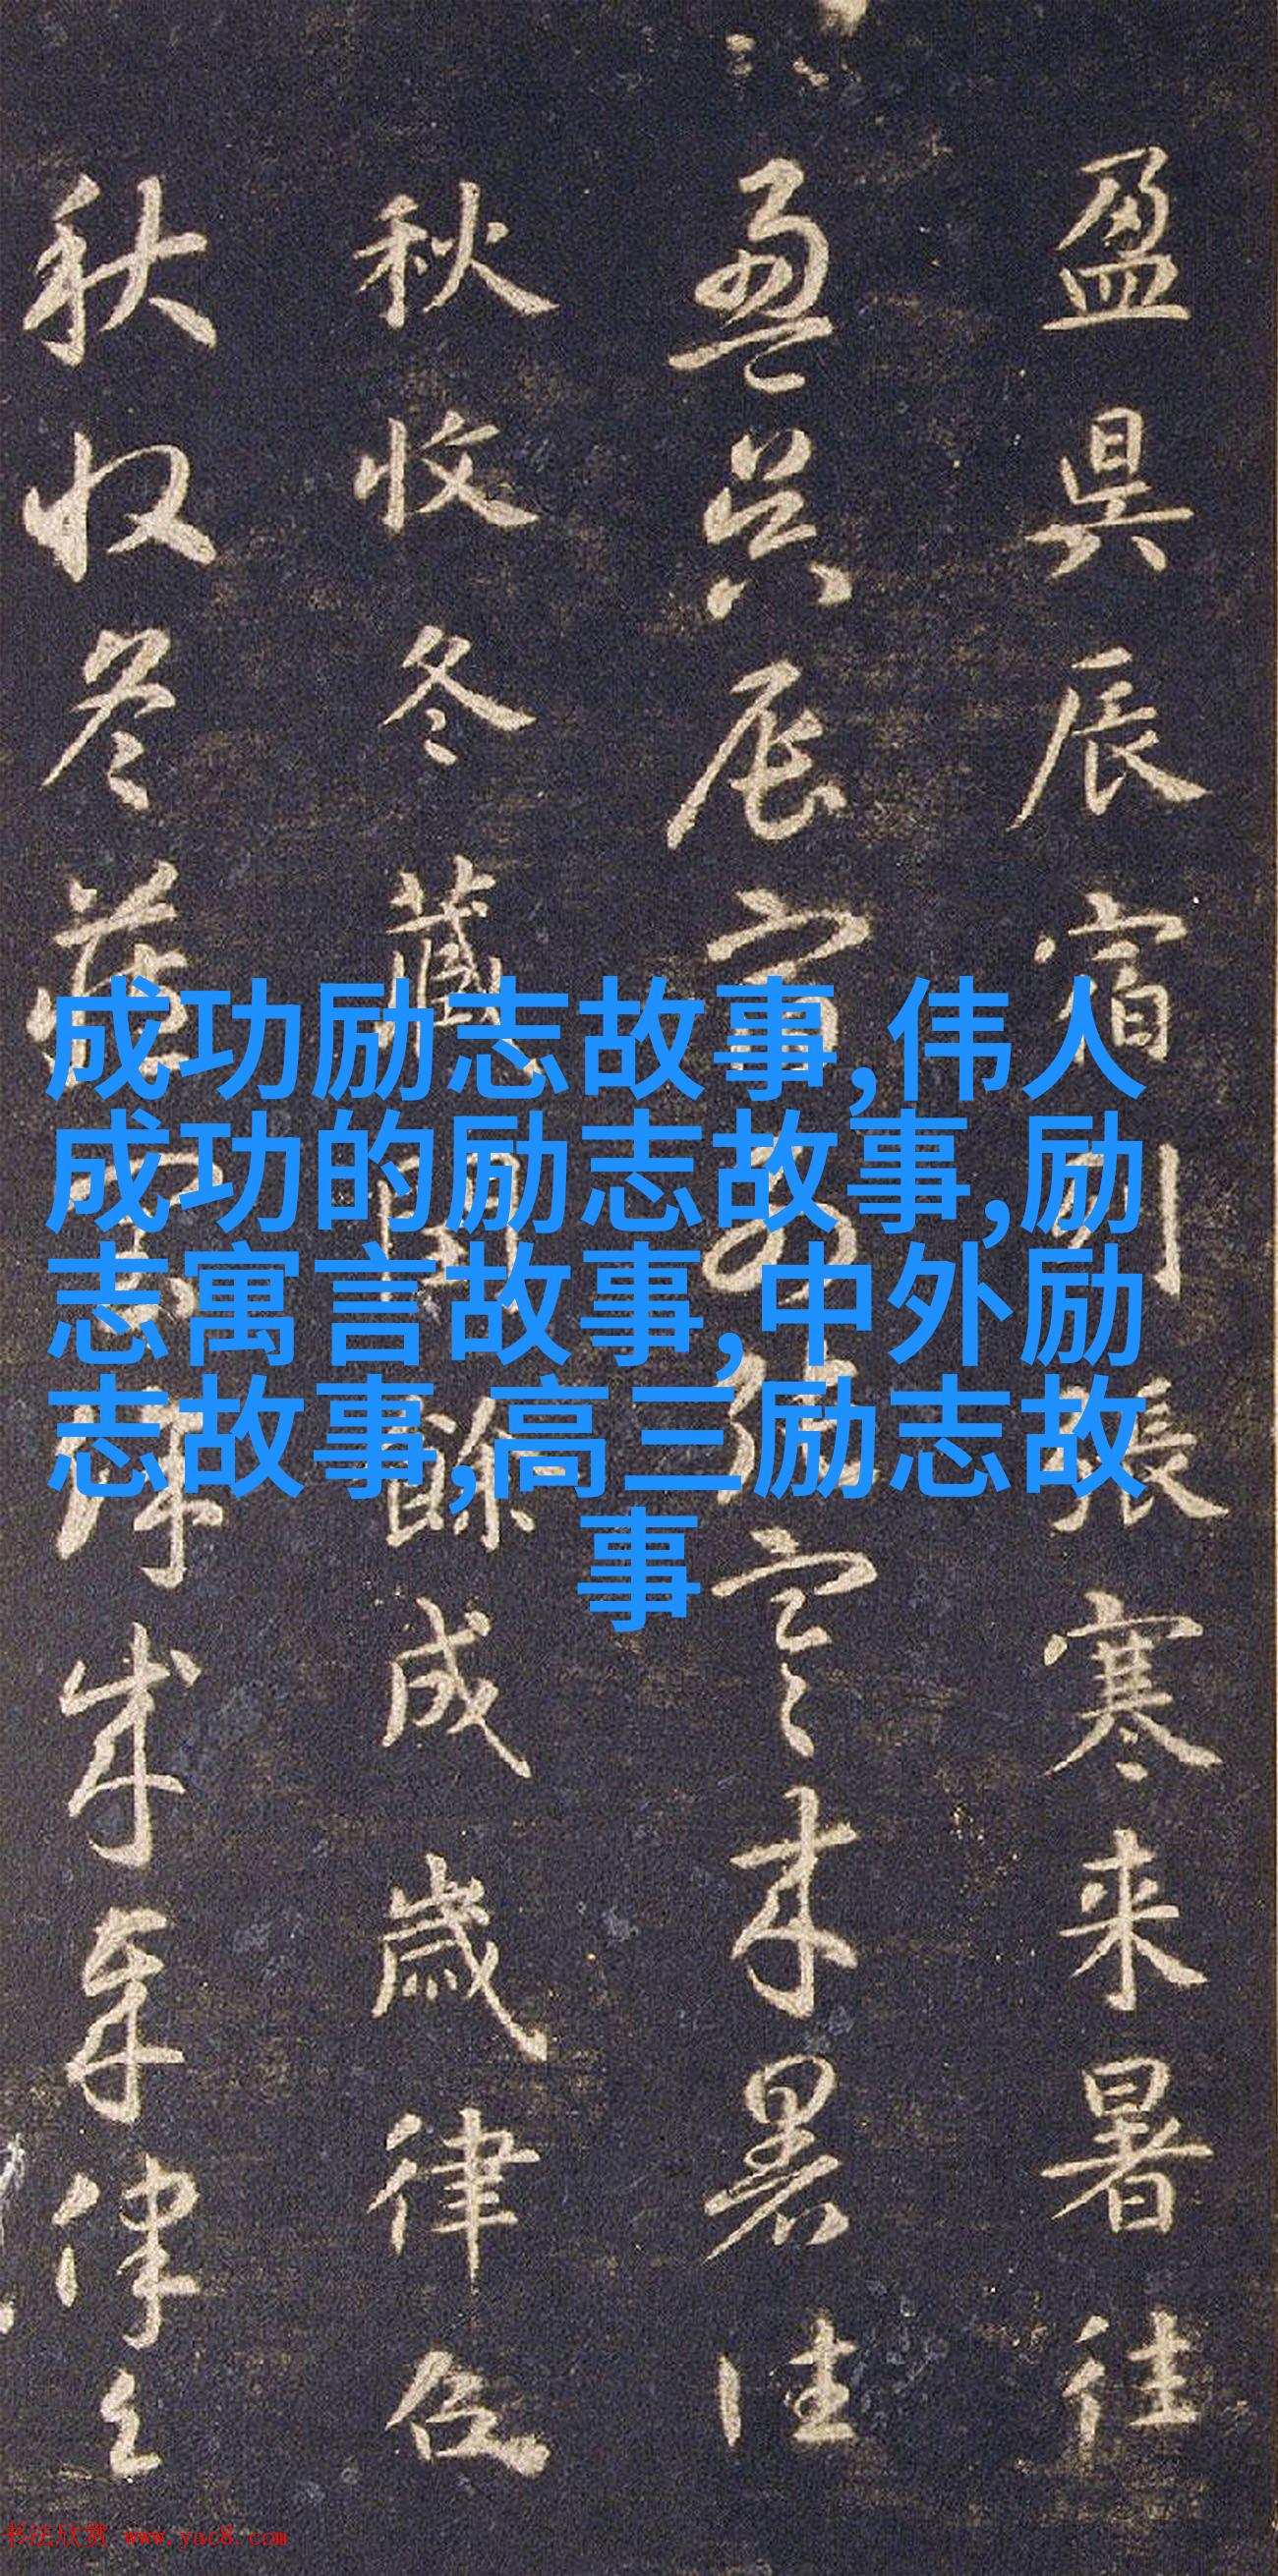 盈昃辰宿列張寒来暑往
盈昃辰宿列張寒来暑往
秋收冬藏閏餘成歲律吕
秋收冬藏閏餘成歲律吕
成功励志故事,伟人
成功的励志故事,励
志寓言故事,中外励
志故事,高三励志故
事
书法欣赏 www.yac8.com